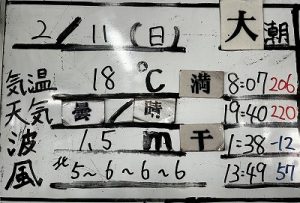 2/11(日) 大潮
気温 18℃ 満 8:07 206
天気 曇/時 19:40 220
波 1.5m 干 1:38 -12
風 北5~6~6~6 13:49 57